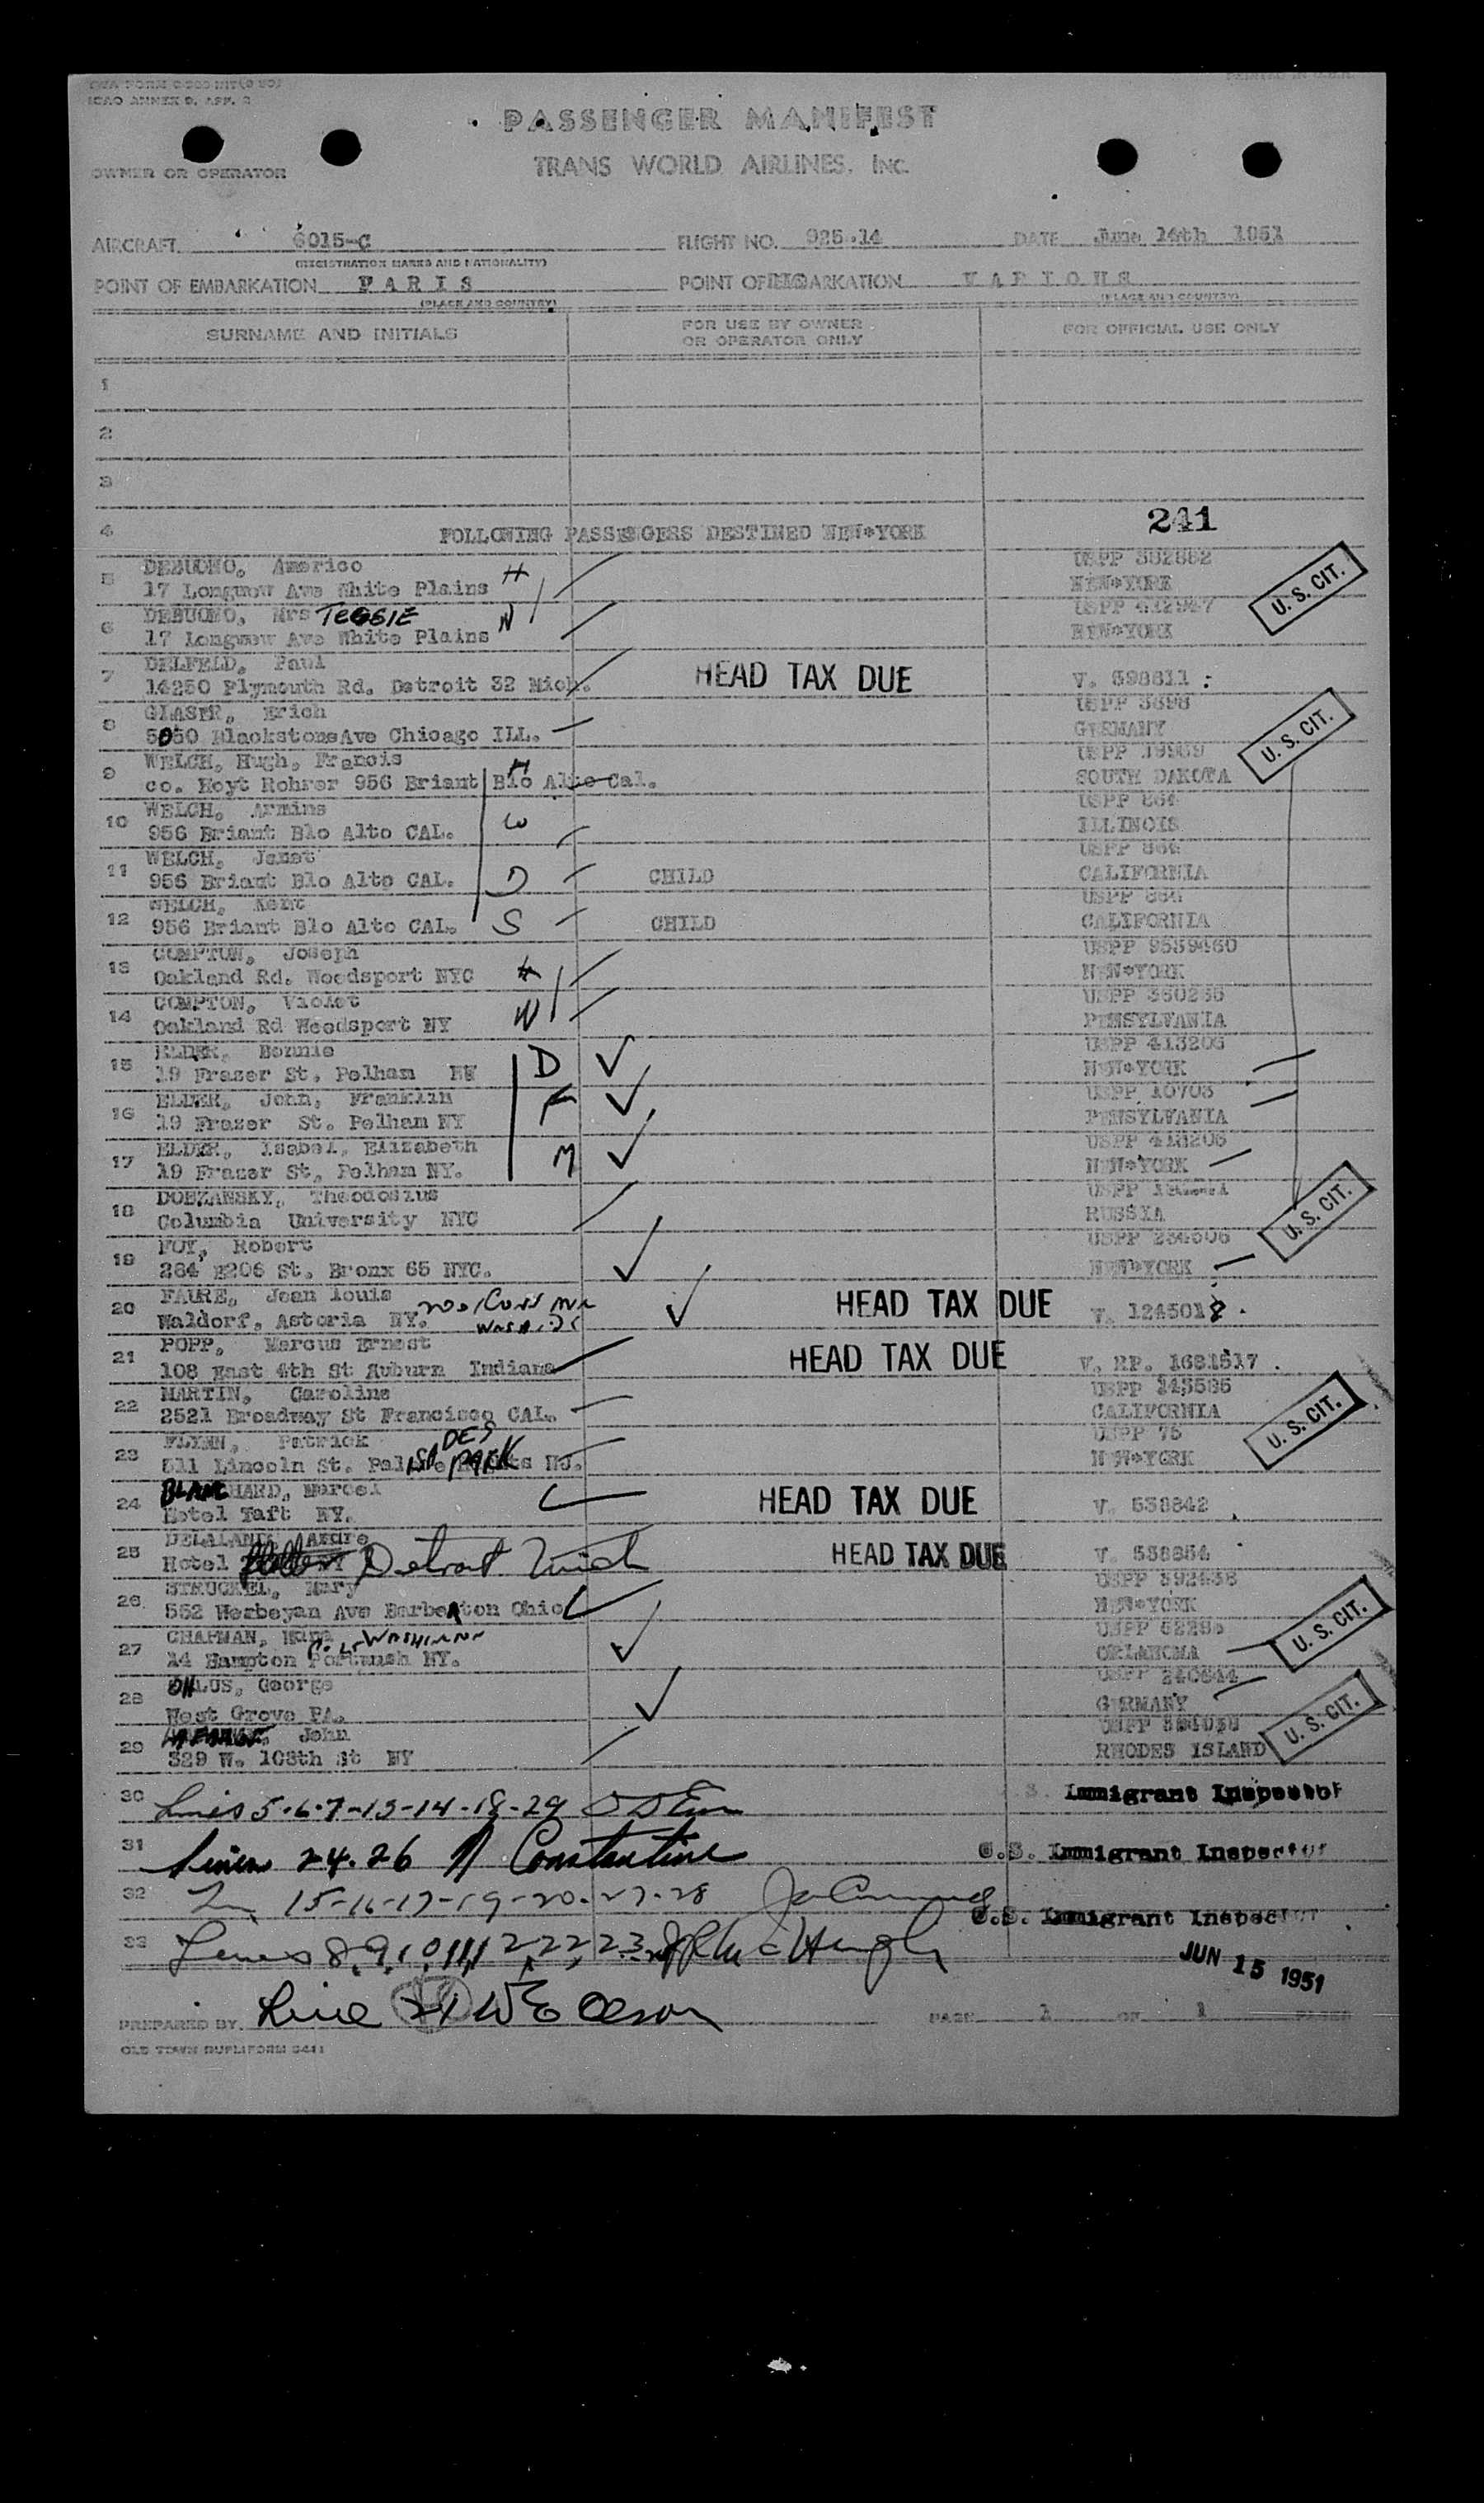 ICAO ANNEX 9, APP. 2
PASSENGER MANIFEST
OWNER OR OPERATOR
TRANS WORLD AIRLINES, INC.
AIRCRAFT 6015-C FLIGHT NO. 925.14 DATE June 14th 1951
(REGISTRATION MARKS AND NATIONALITY)
POINT OF EMBARKATION PARIS POINT OF ARKATION VARIOUS
(PLACE AND COUNTRY) (PLACE AND COUNTRY)
SURNAME AND INITIALS FOR USE BY OWNER OR OPERATOR ONLY FOR OFFICIAL USE ONLY
1
2
3
4 FOLLOWING PASSENGERS DESTINED NEW*YORK 241
5 DEBUONO, Americo H USPP
17 Longvew Ave White Plains NEW*YORK U. S. CIT.
6 DEBUONO, Mrs TESSIE W USPP
17 Longvew Ave White Plains NEW*YORK
7 DELFELD, Paul HEAD TAX DUE
14250 Plymouth Rd. Detroit 32 Mich. V. 598811
8 GLASER, Erich USPP 3698
5050 BlackstoneAve Chicago ILL. GERMANY U. S. CIT.
9 WELCH, Hugh, Francis H USPP 19969
co. Hoyt Rohrer 956 Briant Blo Alto Cal. SOUTH DAKOTA
10 WELCH, Armins W USPP 864
956 Briant Blo Alto CAL. ILLINOIS
11 WELCH, Janet D USPP 864
956 Briant Blo Alto CAL. CHILD CALIFORNIA
12 WELCH, Kent S USPP 864
956 Briant Blo Alto CAL. CHILD CALIFORNIA
13 COMPTON, Joseph H USPP
Oakland Rd. Woodsport NYC NEW*YORK
14 COMPTON, Violet W USPP 360235
Oakland Rd Woodsport NY PENSYLVANIA
15 ELDER, Bonnie D USPP 413206
19 Frazer St, Pelham NEW*YORK
16 ELDER, John, Franklin F USPP 10703
19 Frazer St. Pelham NY PENSYLVANIA
17 ELDER, Isabel, Elizabeth M USPP 413206
19 Frazer St, Pelham NY. NEW*YORK
18 DOBZANSKY, Theodosius USPP
Columbia University NYC RUSSIA U. S. CIT.
19 FOY, Robert USPP
284 E206 St. Bronx 65 NYC. NEW*YORK
20 FAURE, Jean louis HEAD TAX DUE
Waldorf, Astoria NY. 2001 Conn Ave Wash. DC V. 1245018
21 POPP, Marcus Ernest HEAD TAX DUE
108 East 4th St Auburn Indiana V. RP. 1681517
22 MARTIN, Caroline USPP
2521 Broadway St Francisco CAL. CALIFORNIA U. S. CIT.
23 FLYNN, Patrick USPP 75
511 Lincoln St. Palisades PARK NJ. NEW*YORK
24 BLANCHARD, Marcel HEAD TAX DUE
Hotel Taft NY. V. 538842
25 DELALANDE, Andre HEAD TAX DUE
Hotel Detroit Mich V. 538854
26 STRUCKEL, Mary USPP
552 Werbeyan Ave Barberton Ohio NEW*YORK
27 CHAPMAN, USPP U. S. CIT.
14 Hampton NY. P. WASHINGTON OKLAHOMA
28 OHLUS, George USPP
West Grove PA. GERMANY
29 LAFARGE, John USPP U. S. CIT.
329 W. 108th St NY RHODES ISLAND
30 Lines 5-6-7-13-14-18-29 Immigrant Inspector
31 Lines 24.26 N Constantine U.S. Immigrant Inspector
32 15-16-17-19-20-27-28 U.S. Immigrant Inspector
33 Lines 8, 9, 10, 11, 12, 22, 23 McHugh
JUN 15 1951
PREPARED BY Line 21 W E Olson PAGE 1 OF 1 PAGES
OLD TOWN DUPLIFORM 3441